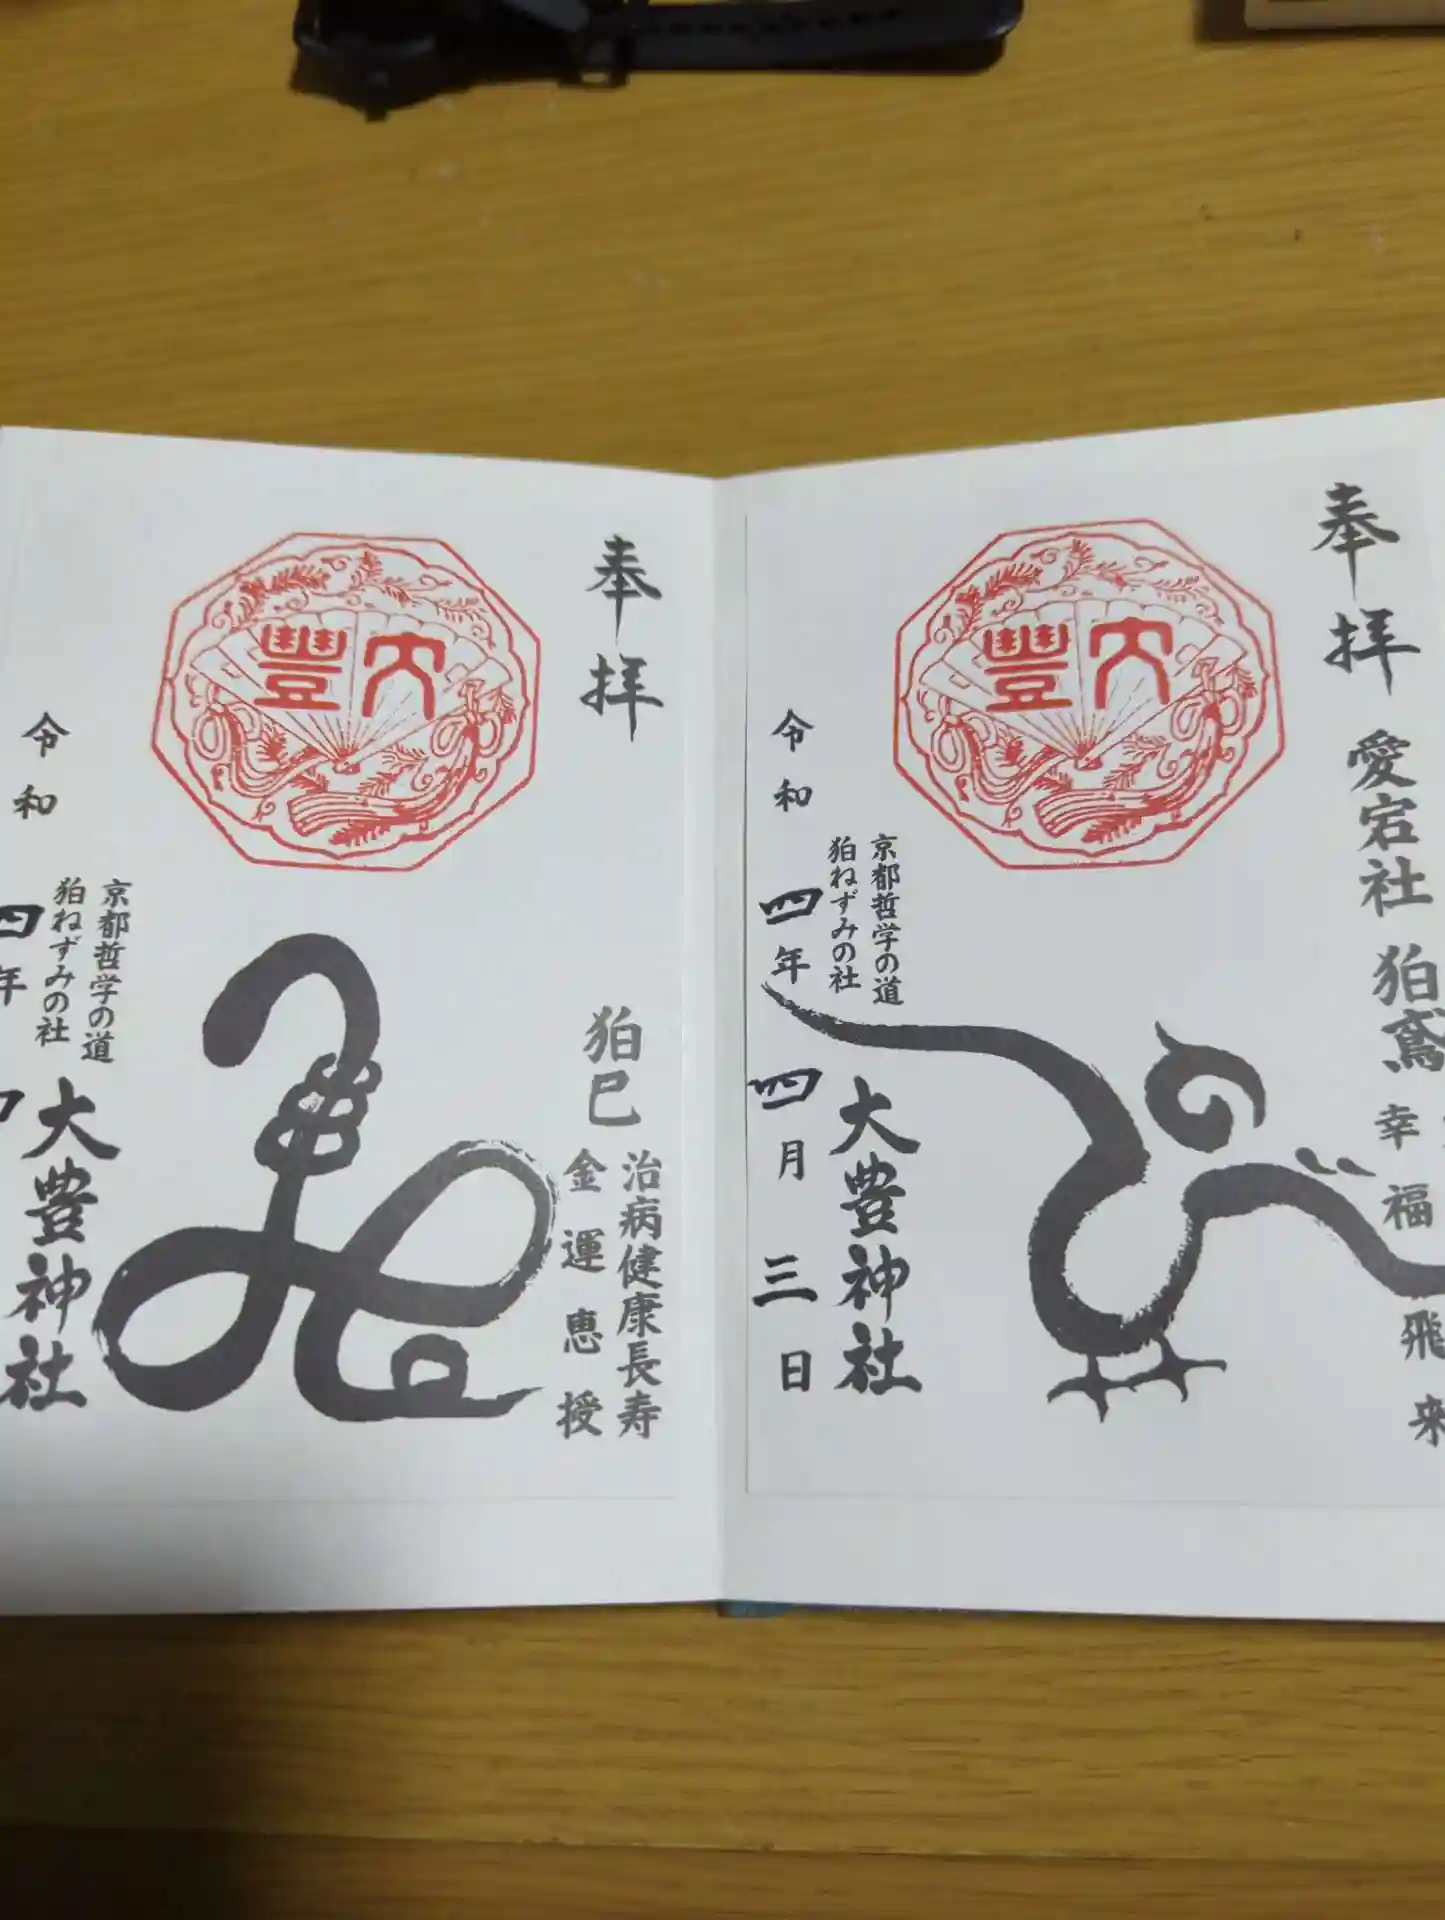 奉拝
愛宕社 狛鳶
幸福飛来
大豊
京都哲学の道
狛ねずみの社
大豊神社
令和四年四月三日
奉拝
狛巳
治病健康長寿
金運恵授
大豐
京都哲学の道
狛ねずみの社
大豊神社
令和四年